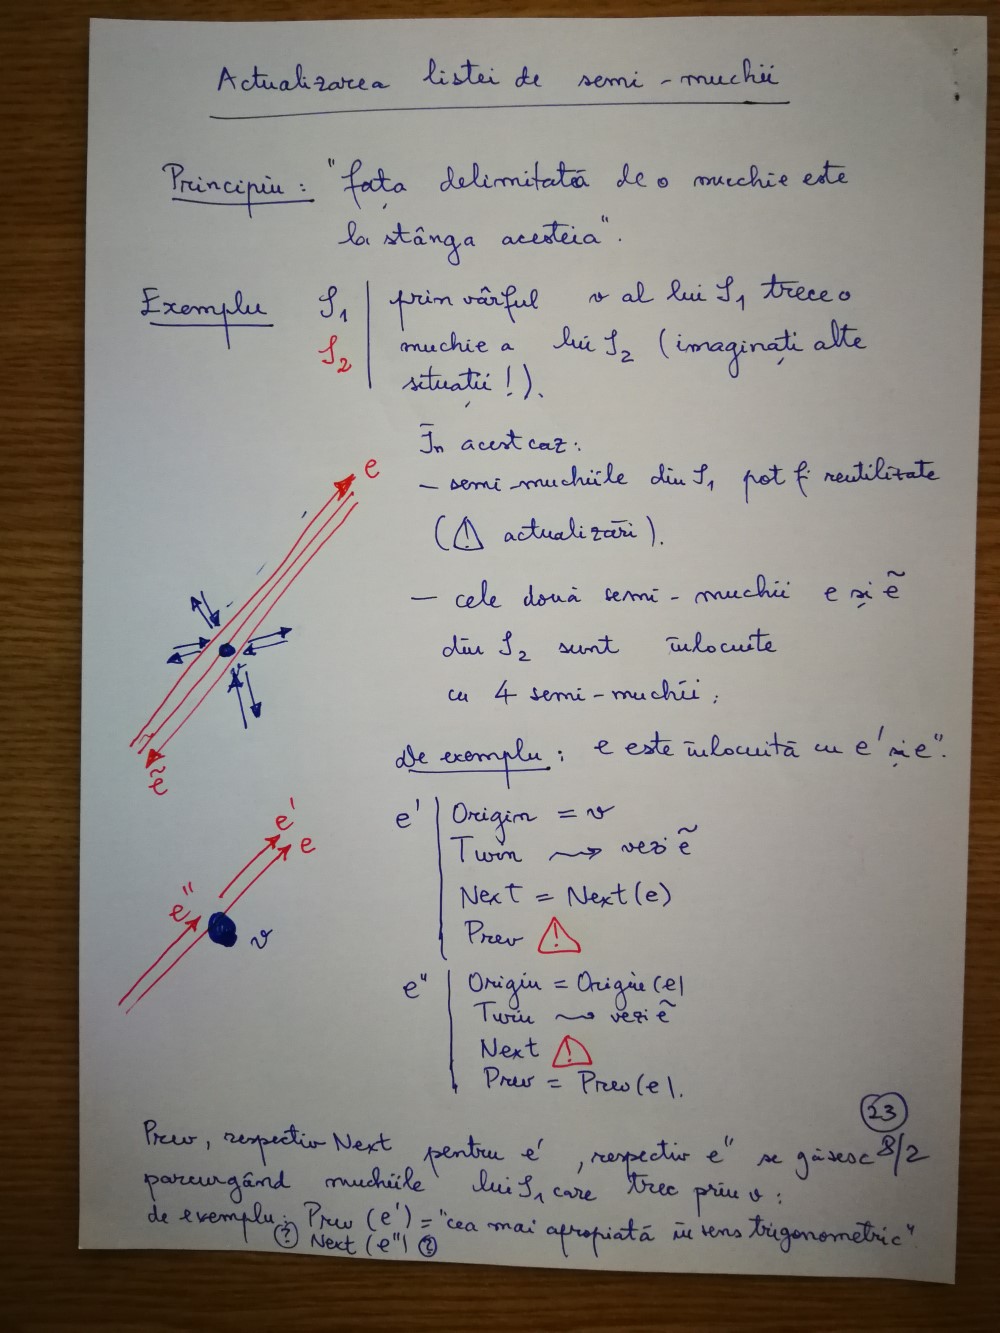 Actualizarea listei de semi-muchii
Principiu: "fața delimitată de o muchie este
la stânga acesteia".
Exemplu S₁ | prin vârful v al lui S₁ trece o
S₂ | muchie a lui S₂ (imaginați alte
situații!).
În acest caz:
e
– semi-muchiile din S₁ pot fi reutilizate
(⚠ actualizări).
– cele două semi-muchii e și ẽ
din S₂ sunt înlocuite
cu 4 semi-muchii;
De exemplu: e este înlocuită cu e' și e".
ẽ
e'
e
e"
v
e' | Origin = v
Twin ⇝ vezi ẽ
Next = Next(e)
Prev ⚠
e" | Origin = Origin(e)
Twin ⇝ vezi ẽ
Next ⚠
Prev = Prev(e).
23
Prev, respectiv Next pentru e', respectiv e" se găsesc 8/2
parcurgând muchiile lui S₁ care trec prin v:
de exemplu: Prev (e') = "cea mai apropiată în sens trigonometric".
? Next (e") ?